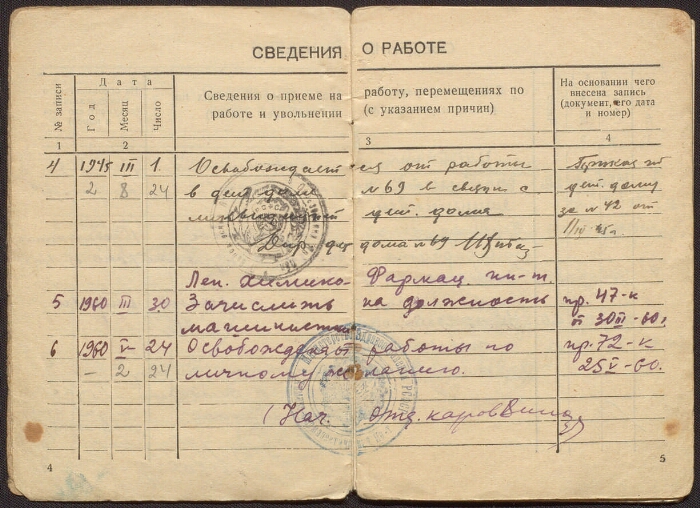 СВЕДЕНИЯ О РАБОТЕ
№ записи
Дата
Год
Месяц
Число
Сведения о приеме на работу, перемещениях по
работе и увольнении (с указанием причин)
На основании чего
внесена запись
(документ, его дата
и номер)
1 2 3 4
4 1945 III 1 Освобождается от работы Приказ по
2 8 24 в дет. дом №69 в связи с дет. дому
ликвидацией дет. дома за №42 от
Дир. дет дома №69
Лен. Химико-Фармац. ин-т.
5 1960 III 30 Зачислить на должность пр. 47-к
машинистки от 30III-60г.
6 1960 V 24 Освобождена от работы по пр. 72-к
— 2 24 личному желанию. 25V-60.
(Нач. отд. кадров
4
5